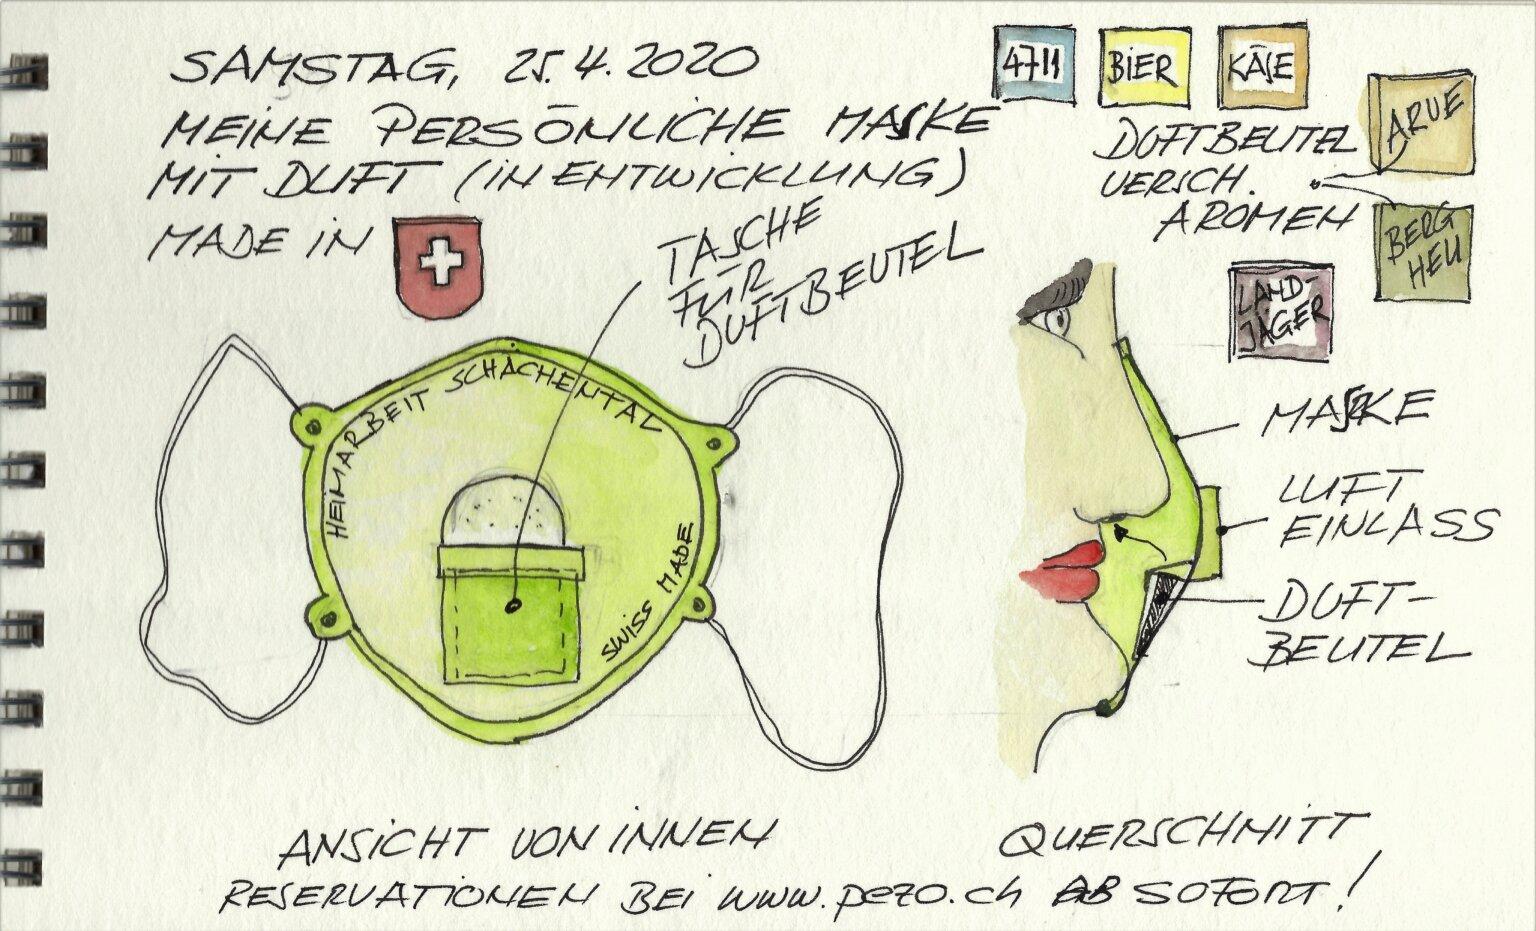 SAMSTAG, 25.4.2020
MEINE PERSÖNLICHE MASKE
MIT DUFT (IN ENTWICKLUNG)
MADE IN
4711
BIER
KÄSE
ARVE
BERG
HEU
LAND-
JÄGER
DUFTBEUTEL
VERSCH.
AROMEN
TASCHE
FÜR
DUFTBEUTEL
HEIMARBEIT SCHÄCHENTAL
SWISS MADE
MASKE
LUFT
EINLASS
DUFT-
BEUTEL
ANSICHT VON INNEN
QUERSCHNITT
RESERVATIONEN BEI www.pezo.ch AB SOFORT!